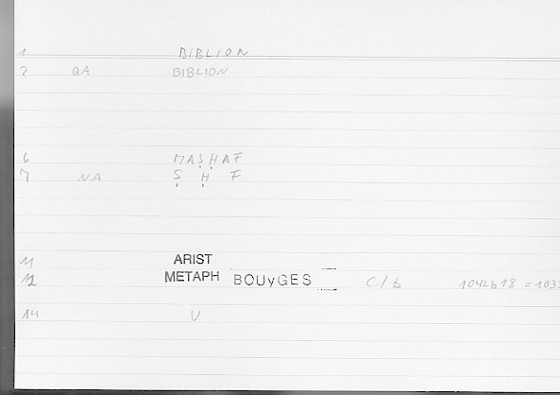 1 BIBLION
2 QA BIBLION
6 MAṢḤAF
7 NA Ṣ Ḥ F
11 ARIST
12 METAPH BOUyGES C/b 1042b18 = 103
14 U